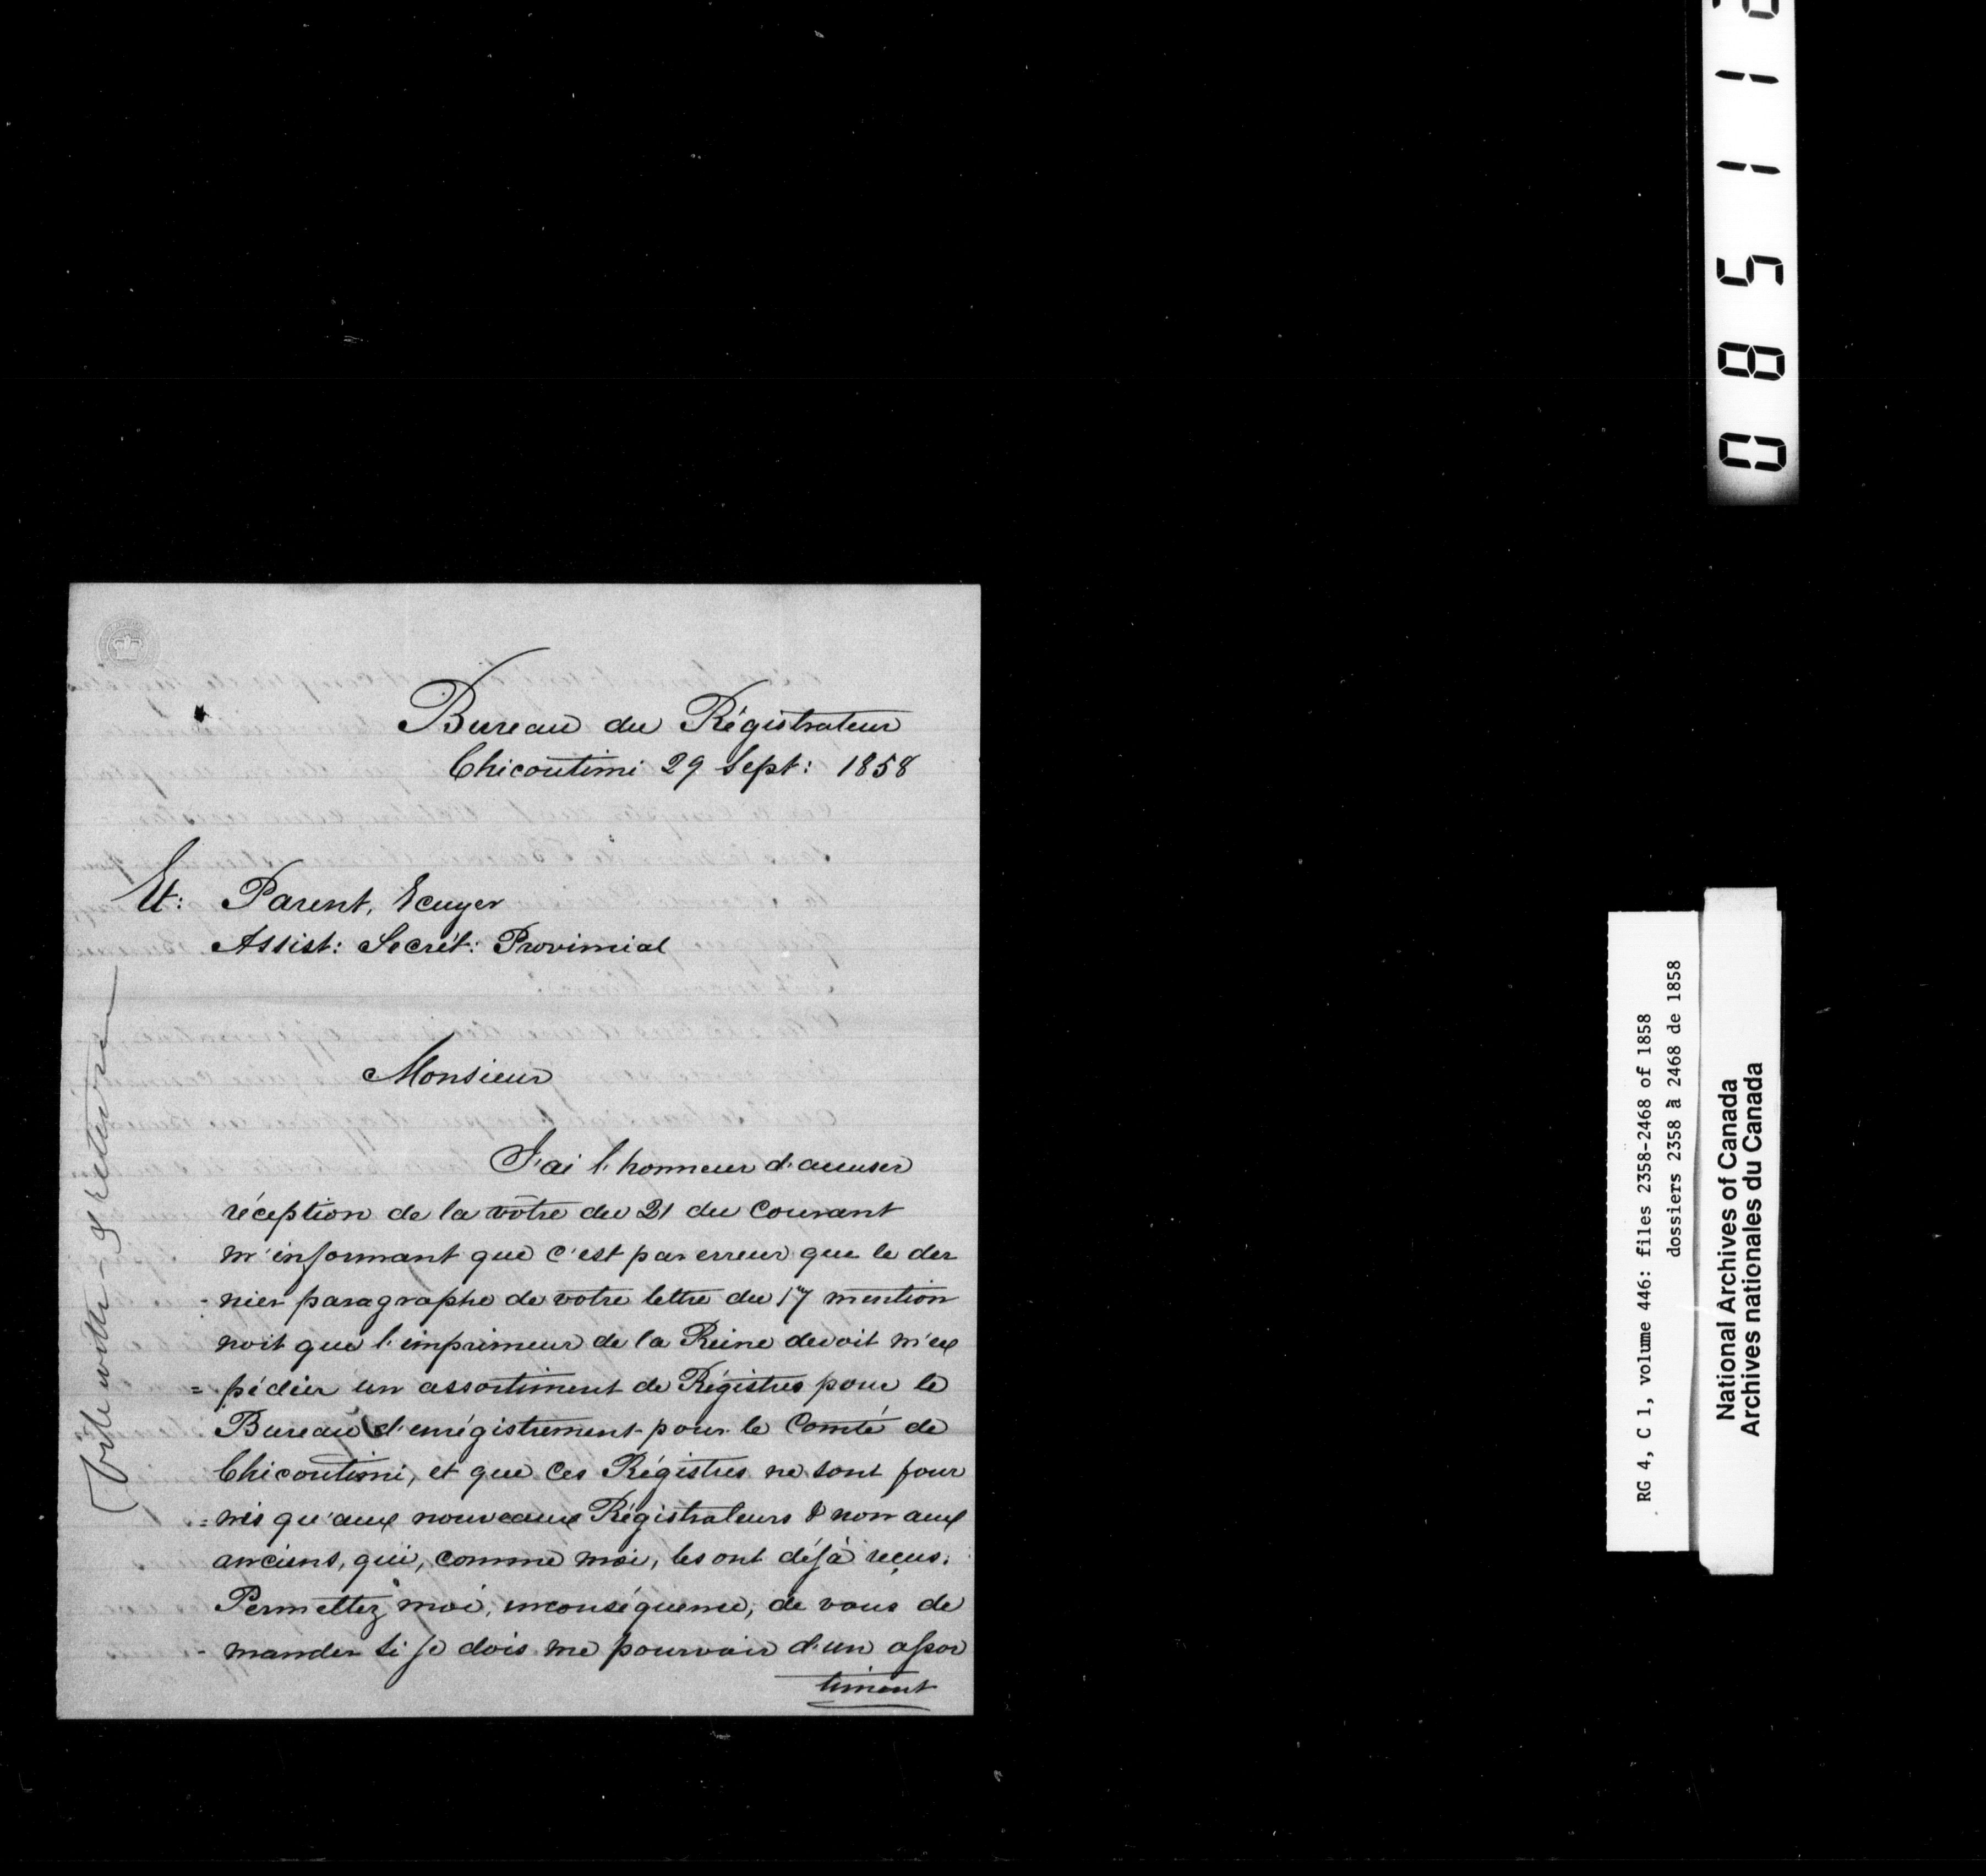 Bureau du Régistrateur
Chicoutimi 29 Sept: 1858
Et: Parent, Ecuyer
Assist: Secrét: Provincial
Monsieur
J'ai l'honneur d'accuser
réception de la vôtre du 21 du Courant
m'informant que c'est par erreur que le der
- nier paragraphe de votre lettre du 17 mention
noit que l'imprimeur de la Reine devoit m'ex
= pédier un assortiment de Régistres pour le
Bureau d'enrégistrement pour le Comté de
Chicoutimi, et que ces Régistres ne sont four
= nis qu'aux nouveaux Régistrateurs & non aux
anciens, qui, comme moi, les ont déjà reçus.
Permettez moi, inconséquence, de vous de
- mander si je dois me pourvoir d'un assor
timent
085112
RG 4, C 1, volume 446: files 2358-2468 of 1858
dossiers 2358 à 2468 de 1858
National Archives of Canada
Archives nationales du Canada